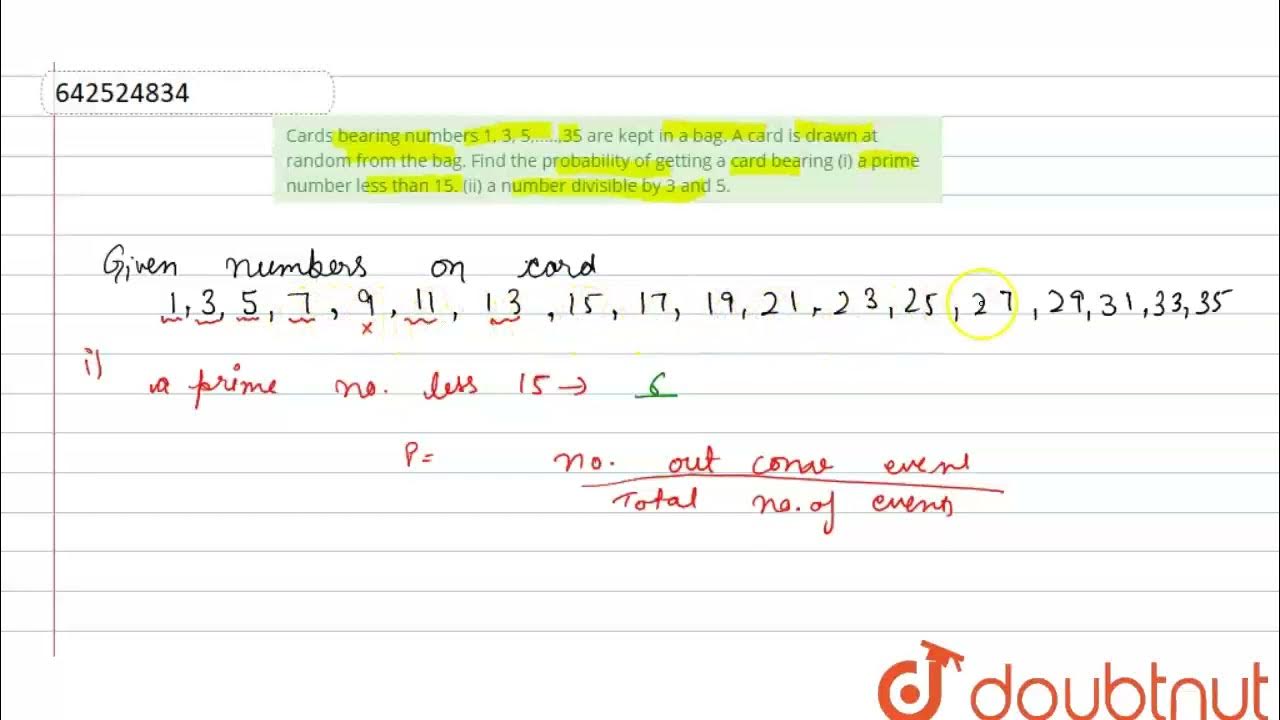 642524834
Cards bearing numbers 1, 3, 5,.....,35 are kept in a bag. A card is drawn at
random from the bag. Find the probability of getting a card bearing (i) a prime
number less than 15. (ii) a number divisible by 3 and 5.
Given numbers on card
1, 3, 5, 7, 9, 11, 13, 15, 17, 19, 21, 23, 25, 27, 29, 31, 33, 35
x
i) a prime no. less 15 → 6
P = no. out come event
Total no. of events
doubtnut